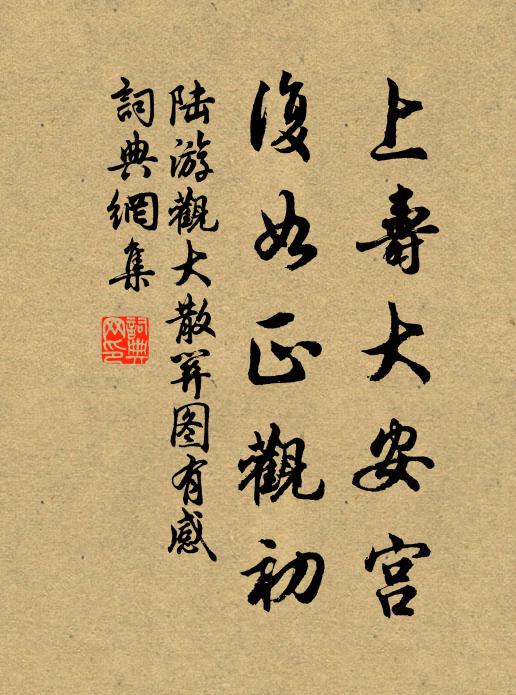 上壽大安宮
復如正觀初
陸游觀大散關图有感
詞典網集
詞典网印